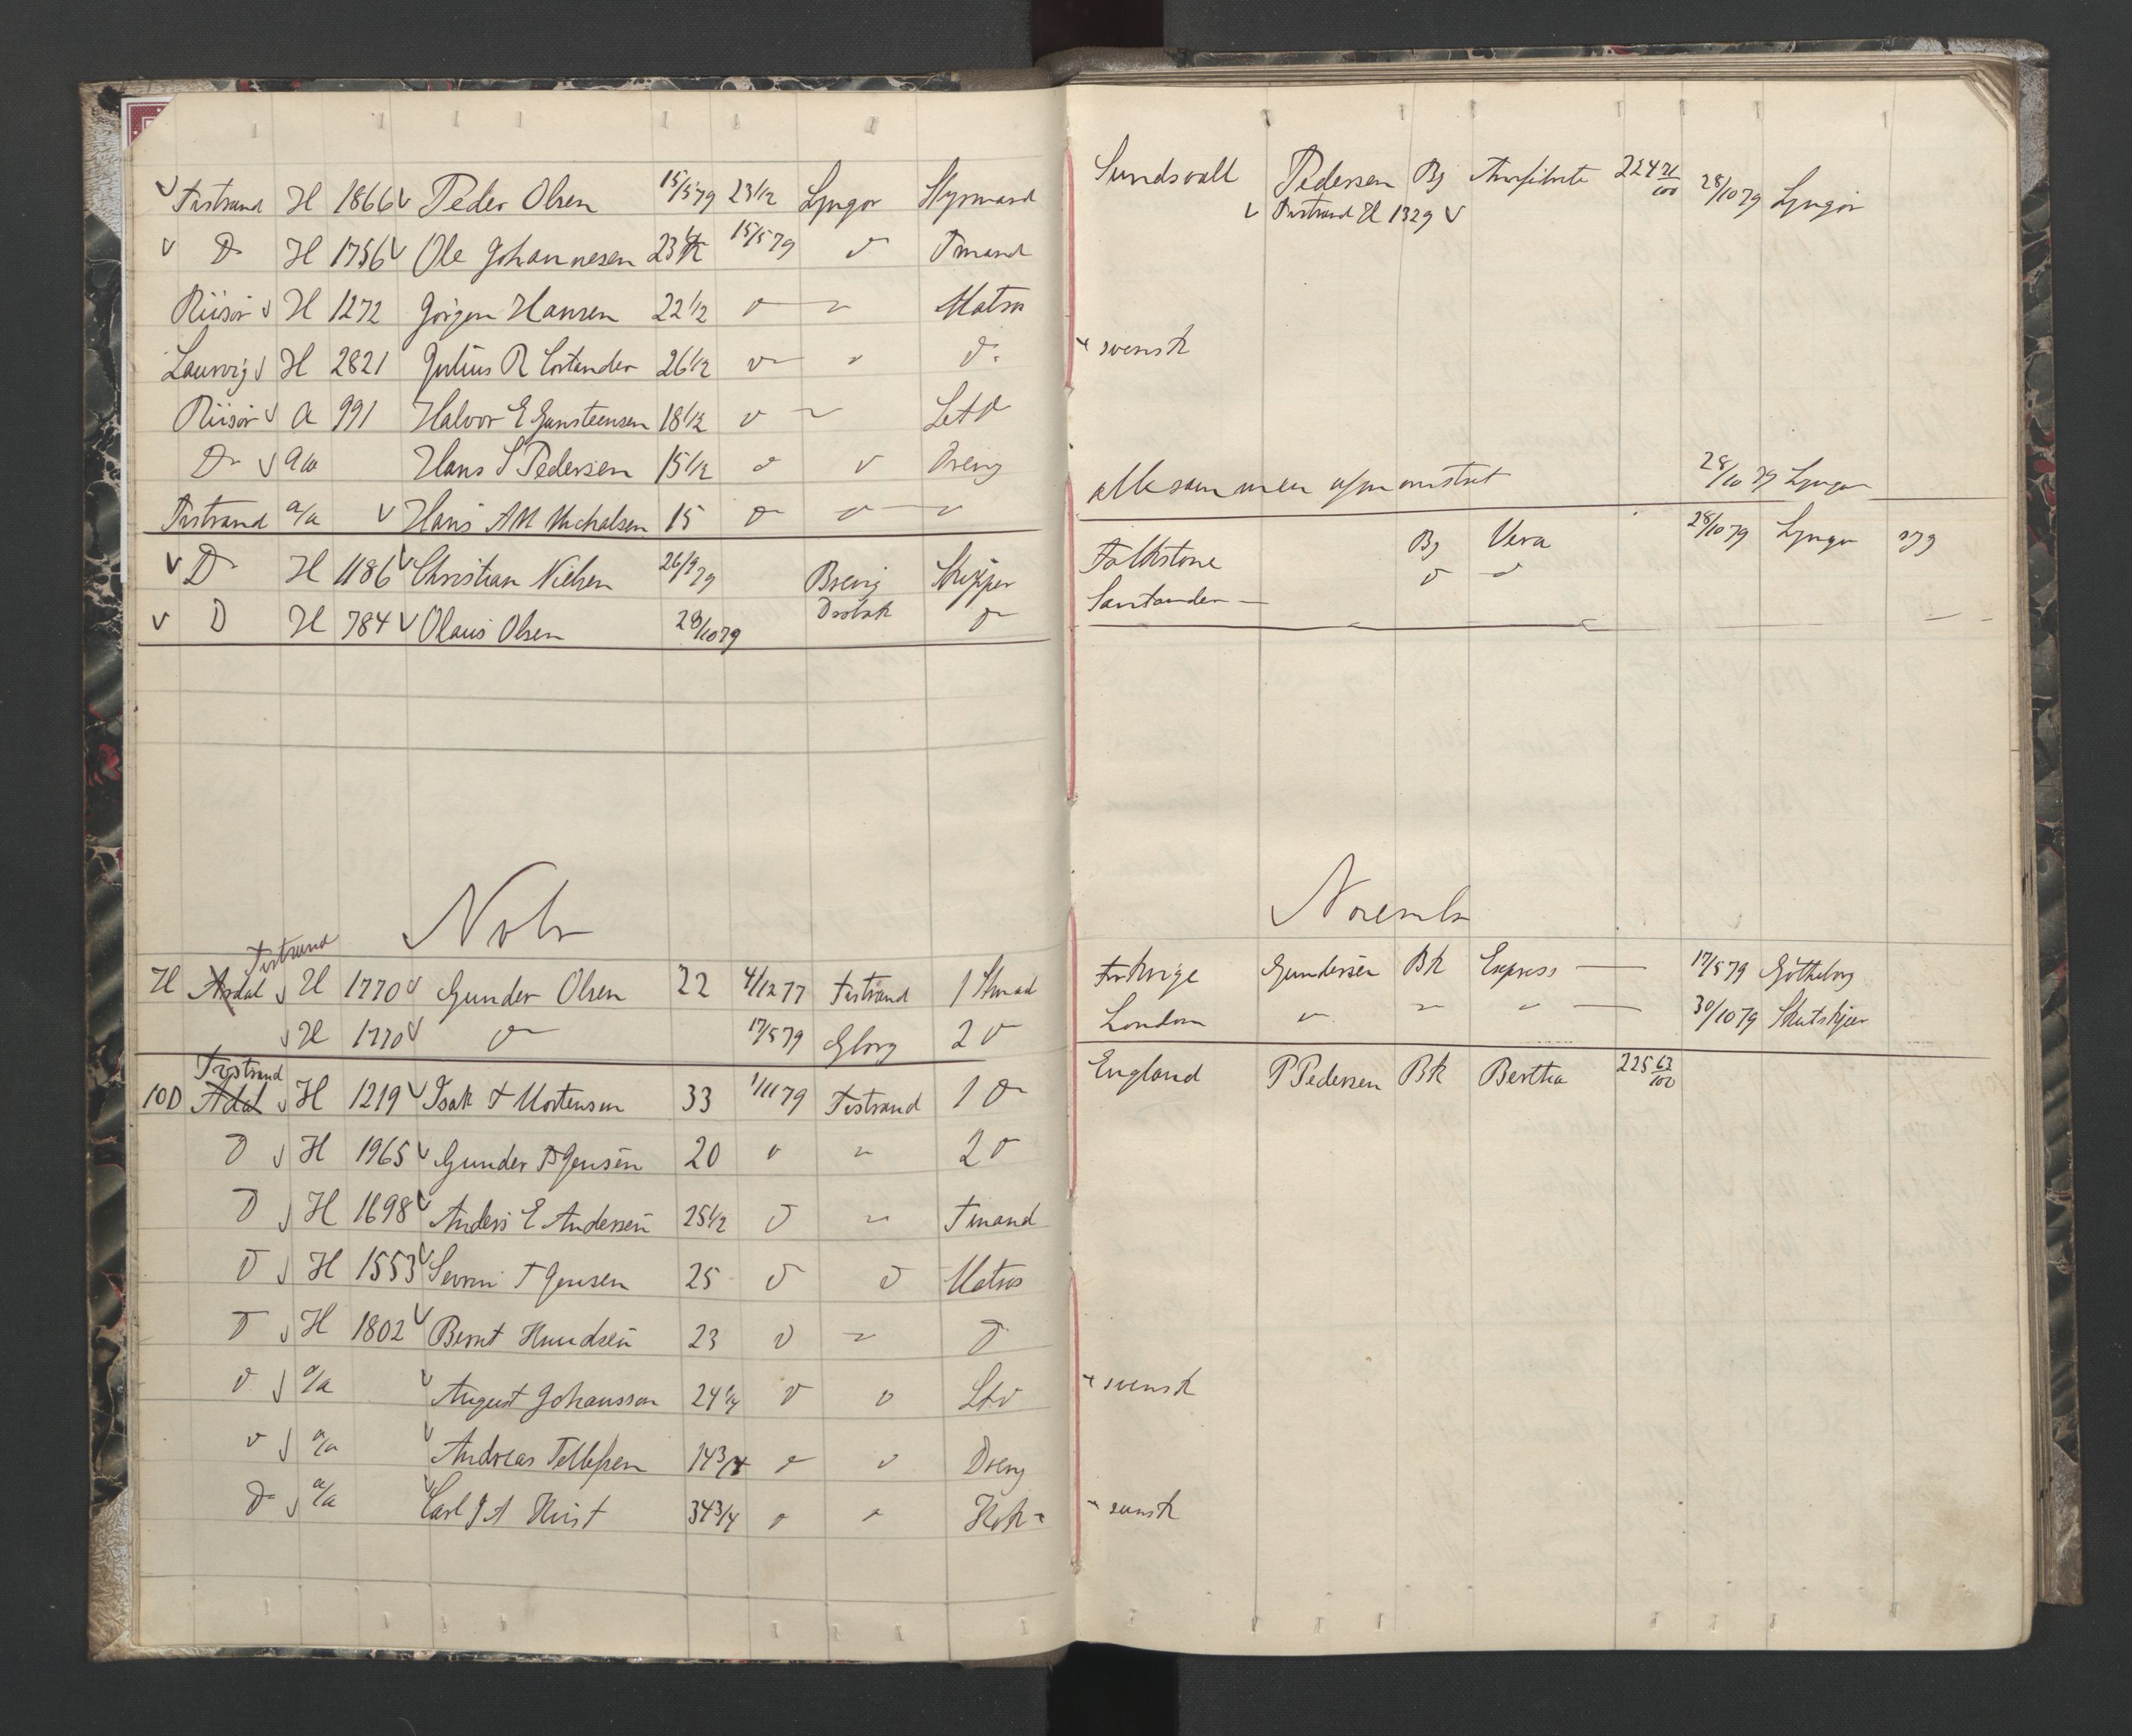 Tvstrand H 1866 Peder Olsen 15/5 79 23 1/2 Lyngør Styrmand
Do H 1756 Ole Johannesen 23 15/5 79 Do Tmand
Riisør H 1272 Jörgen Hansen 22 1/2 Do " Matros
Laurvig H 2821 Julius R 26 1/2 Do " Do
Riisør A 991 Halvor E Gunsteensen 18 1/2 Do " Let Do
Do a/a Hans S Pedersen 15 1/2 Do Do Dreng
Tvstrand a/a Hans AM Michalsen 15 Do Do
Do H 1186 Christian Nielsen 26/9 79 Brevig Skipper
D H 784 Olaus Olsen 28/10 79 Drobak Do
Novbr
Tvstrand
H Ardal H 1770 Gunder Olsen 22 4/12 77 Tvstrand 1 Stmad
H 1770 Do 17/5 79 Gborg 2 Do
Tvstrand
10D Adal H 1219 Isak T Mortensen 33 1/11 79 Tvstrand 1 Do
D H 1965 Gunder B Jensen 20 Do " 2 Do
D H 1698 Anders E Andersen 25 1/2 D " Tmand
D H 1553 Sevrin T Jensen 25 D D Matros
D H 1802 Bernt Knudsen 23 D " D
D a/a August Johansson 24 1/4 D D Ltv
D a/a Andreas Tellefsen 14 3/4 D D Dreng
Do a/a Carl J A 34 3/4 D " Kok
Sundsvall Pedersen Bg Amfitrite 224 71/100 28/10 79 Lyngör
Tvstrand H 1329
svensk
allesammen afmønstret 28/10 79 Lyngør
Folkstone Bg Vera 28/10 79 Lyngør
Santander Do Do
November
Gundersen Bk Express 17/5 79 Götheborg
London Do " " 30/10 79
England P Pedersen Bk Bertha 225 63/100
svensk
svensk